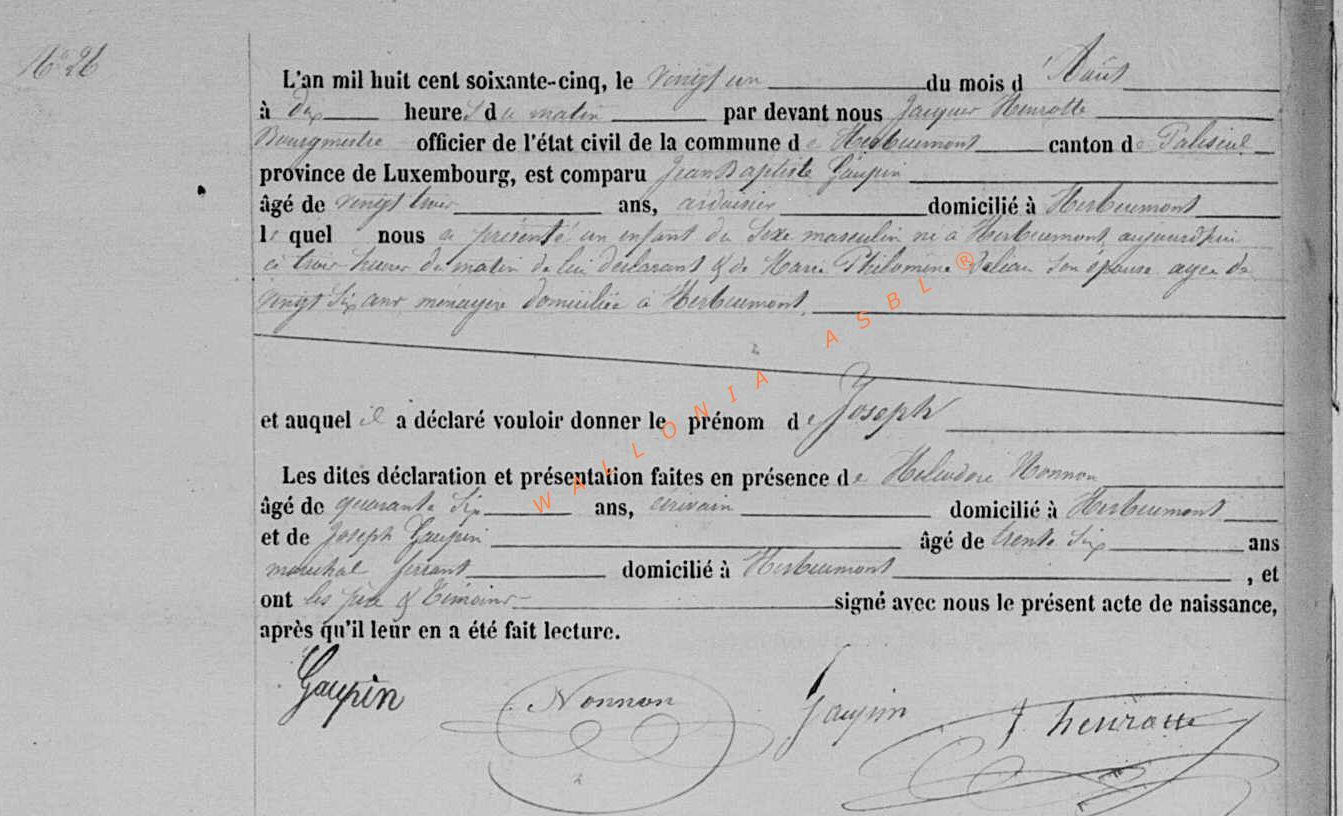 N° 26
L'an mil huit cent soixante-cinq, le vingt un du mois d'Août
à dix heures du matin par devant nous Jacques Henrotte
Bourgmestre officier de l'état civil de la commune de Herbeumont canton de Paliseul
province de Luxembourg, est comparu Jean Baptiste Gaupin
âgé de vingt trois ans, ardoisier domicilié à Herbeumont
lequel nous a présenté un enfant du sexe masculin né à Herbeumont aujourd'hui
à trois heures du matin de lui déclarant & de Marie Philomène son épouse agée de
vingt six ans ménagère domiciliée à Herbeumont,
et auquel il a déclaré vouloir donner le prénom de Joseph
Les dites déclaration et présentation faites en présence de Heliodore Nonnon
âgé de quarante six ans, écrivain domicilié à Herbeumont
et de Joseph Gaupin âgé de trente six ans
marechal ferrant domicilié à Herbeumont, et
ont les père & témoins signé avec nous le présent acte de naissance,
après qu'il leur en a été fait lecture.
Gaupin Nonnon Gaupin J henrotte
WALLONIA ASBL ®